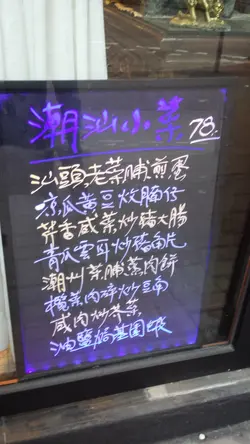 潮汕小菜 78.
汕頭老菜脯煎蛋
凉瓜黄豆炆腩仔
芹香咸菜炒豬大腸
青瓜雲耳炒豬肉片
潮州菜脯蒸肉餅
欖菜肉碎炒豆角
咸肉炒芥菜
油鹽焗基圍蝦